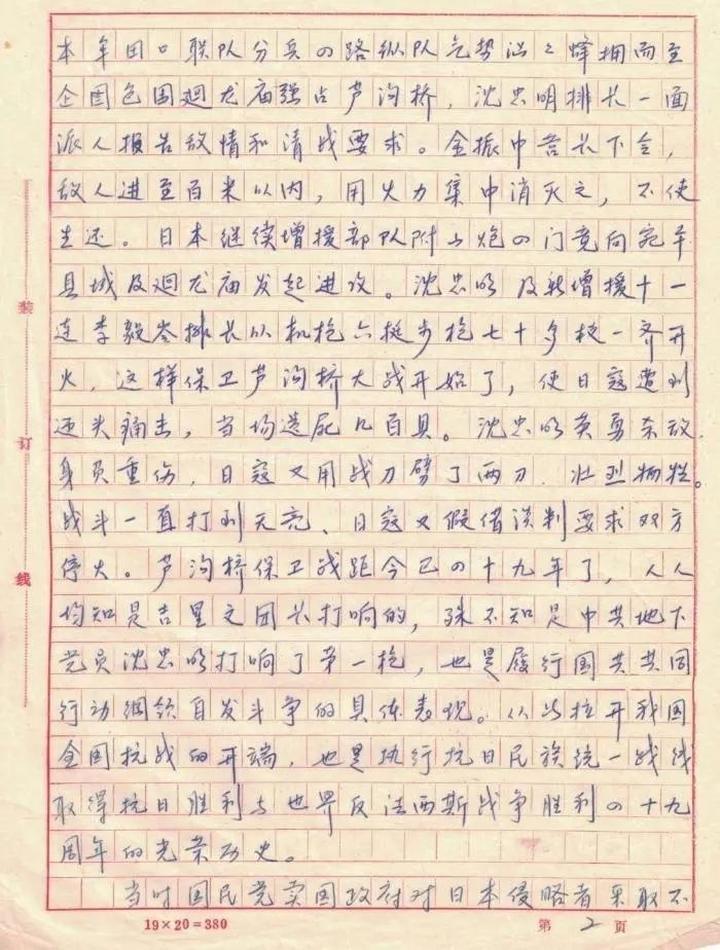 本军团口联队分兵四路纵队气势汹汹蜂拥而至
企图包围廻龙庙强占芦沟桥，沈忠明排长一面
派人报告敌情和请战要求。金振中营长下令，
敌人进至百米以内，用火力集中消灭之，不使
生还。日本继续增援部队附山炮四门竟向宛平
县城及廻龙庙发起进攻。沈忠明及新增援十一
连李毅岑排长以机枪六挺步枪七十多枝一齐开
火，这样保卫芦沟桥大战开始了，使日寇遭到
迎头痛击，当场造死几百具。沈忠明英勇杀敌，
身负重伤，日寇又用战刀劈了两刀，壮烈牺牲。
战斗一直打到天亮、日寇又假借谈判要求双方
停火。芦沟桥保卫战距今已四十九年了，人人
均知是吉星文团长打响的，殊不知是中共地下
党员沈忠明打响了第一枪，也是履行国共共同
行动纲领自发斗争的具体表现。从此拉开我国
全国抗战的开端，也是执行抗日民族统一战线
取得抗日胜利与世界反法西斯战争胜利四十九
周年的光荣历史。
当时国民党卖国政府对日本侵略者采取不
装
订
线
19×20=380
第 2 页